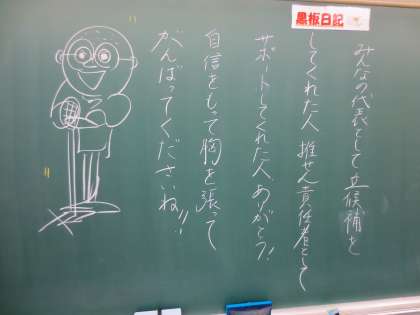 黒板日記
みんなの代表として立候補を
してくれた人 推せん責任者として
サポートしてくれた人、ありがとう!
自信をもって胸を張って
がんばってくださいね!!